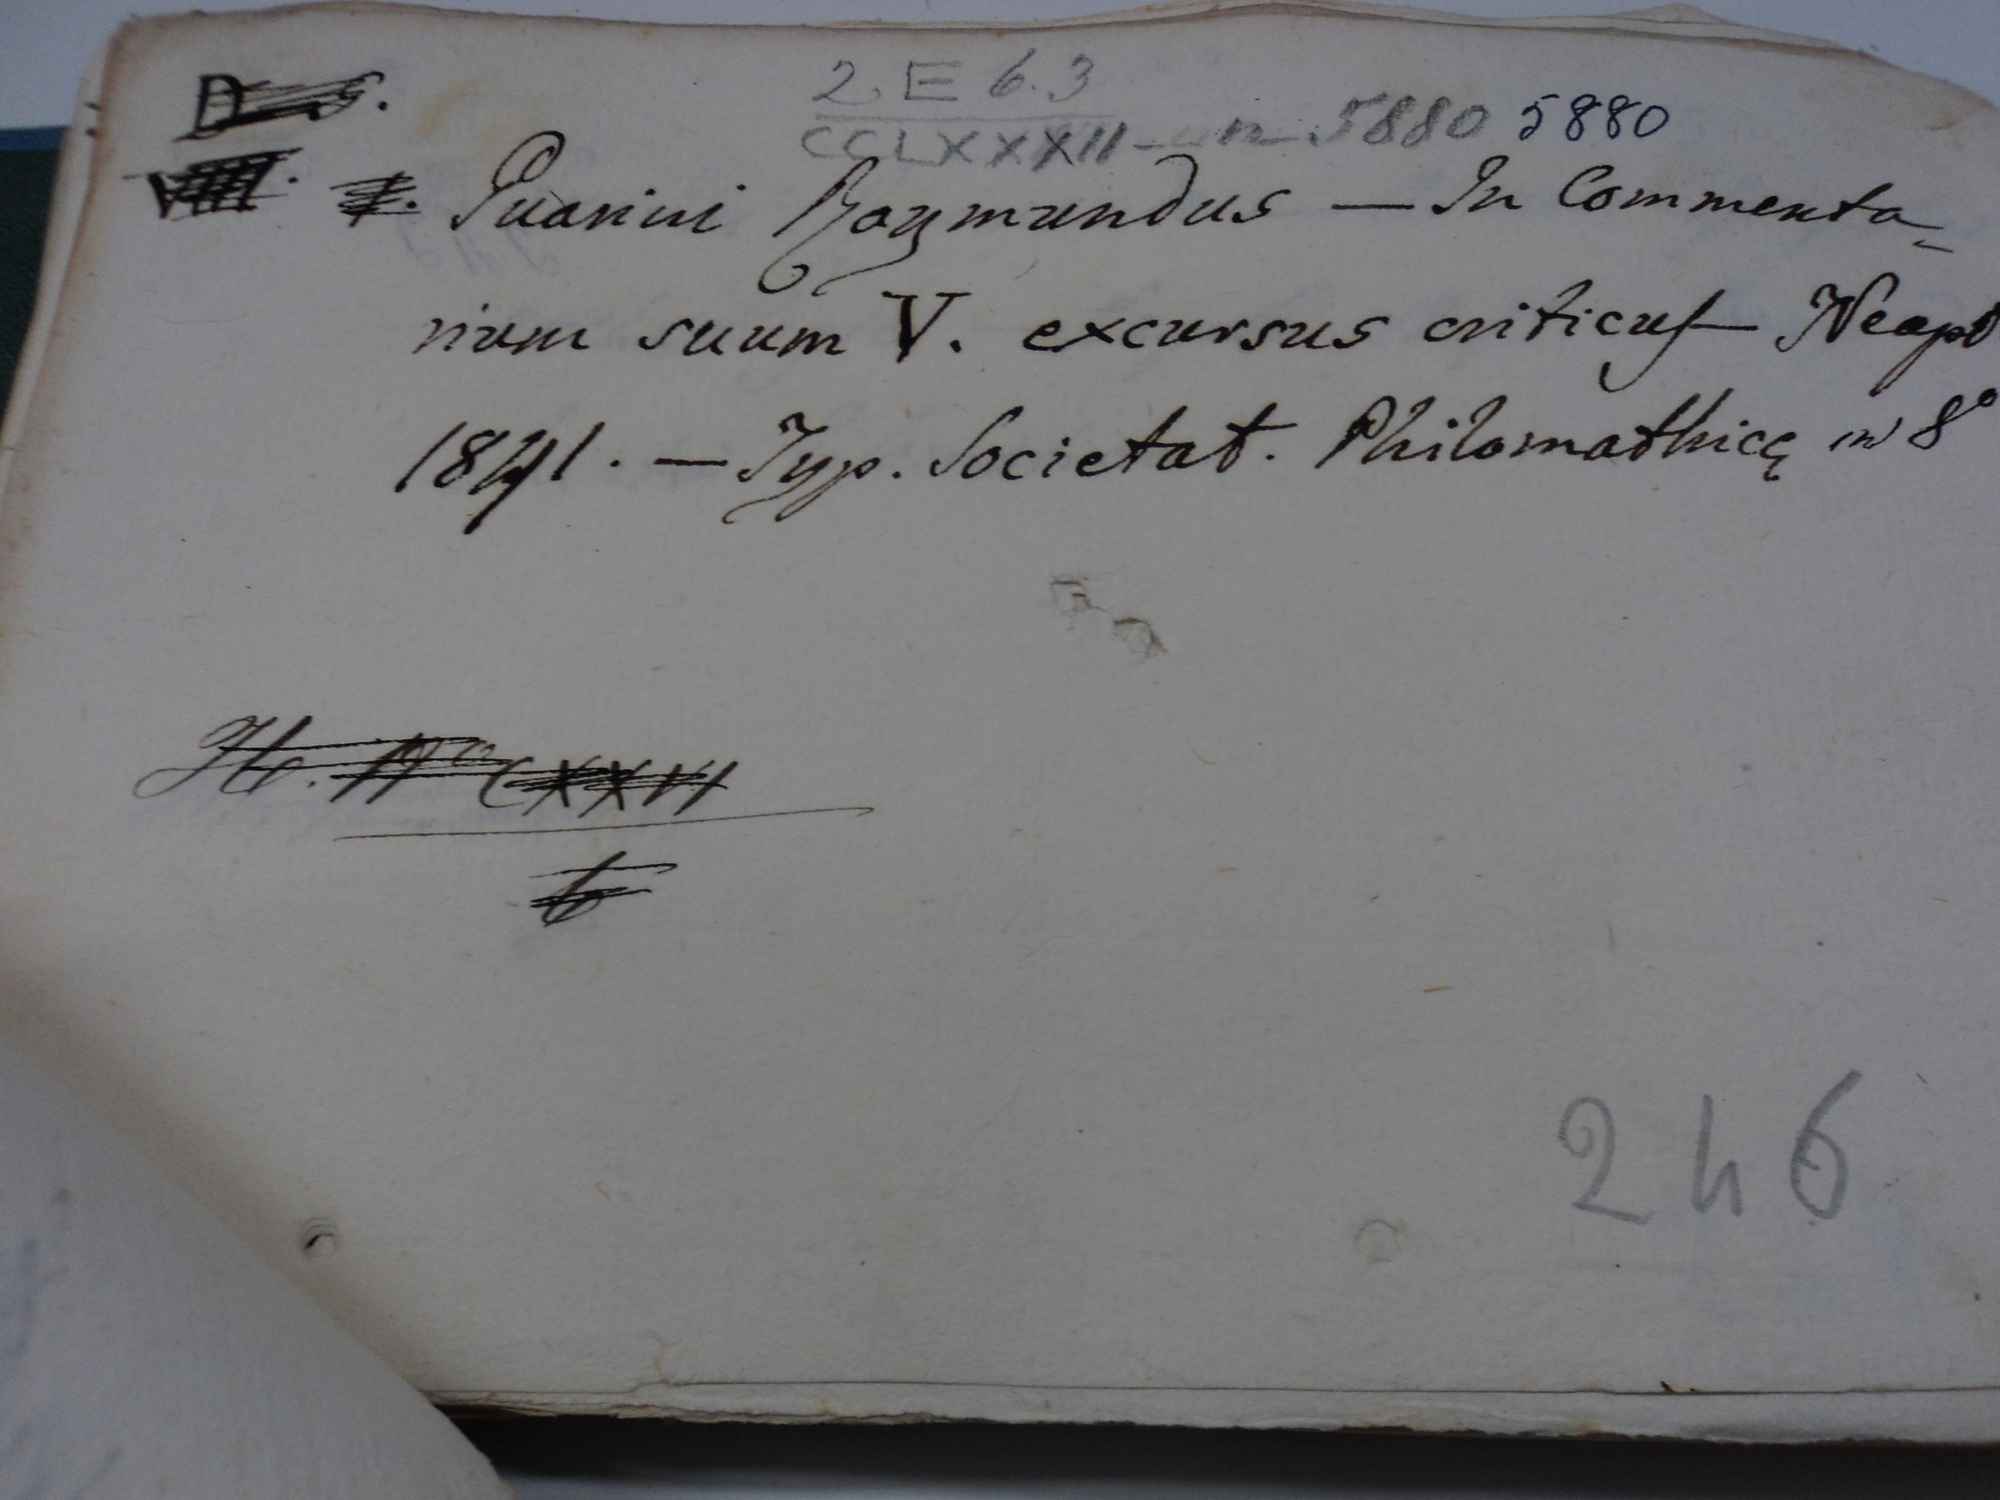 2. E 6.3
CCLXXXII - n. 5880 5880
Guarini Raymundus — In Commenta-
rium suum V. excursus criticus — Neapol
1841. — Typ. Societat. Philomathicę in 8°
H. N° CXXVI
6
246